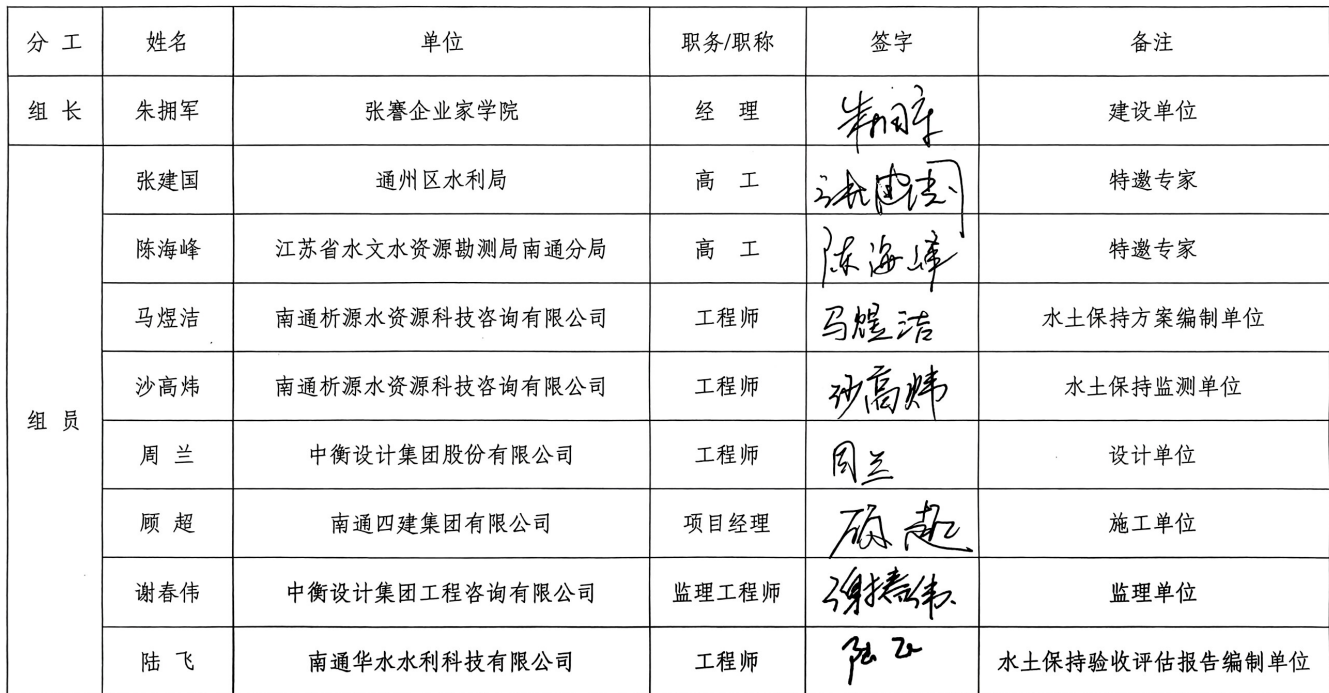 分工 姓名 单位 职务/职称 签字 备注
组长 朱拥军 张謇企业家学院 经理 朱拥军 建设单位
组员 张建国 通州区水利局 高工 张建国 特邀专家
陈海峰 江苏省水文水资源勘测局南通分局 高工 陈海峰 特邀专家
马煜洁 南通析源水资源科技咨询有限公司 工程师 马煜洁 水土保持方案编制单位
沙高炜 南通析源水资源科技咨询有限公司 工程师 沙高炜 水土保持监测单位
周兰 中衡设计集团股份有限公司 工程师 周兰 设计单位
顾超 南通四建集团有限公司 项目经理 顾超 施工单位
谢春伟 中衡设计集团工程咨询有限公司 监理工程师 谢春伟 监理单位
陆飞 南通华水水利科技有限公司 工程师 陆飞 水土保持验收评估报告编制单位